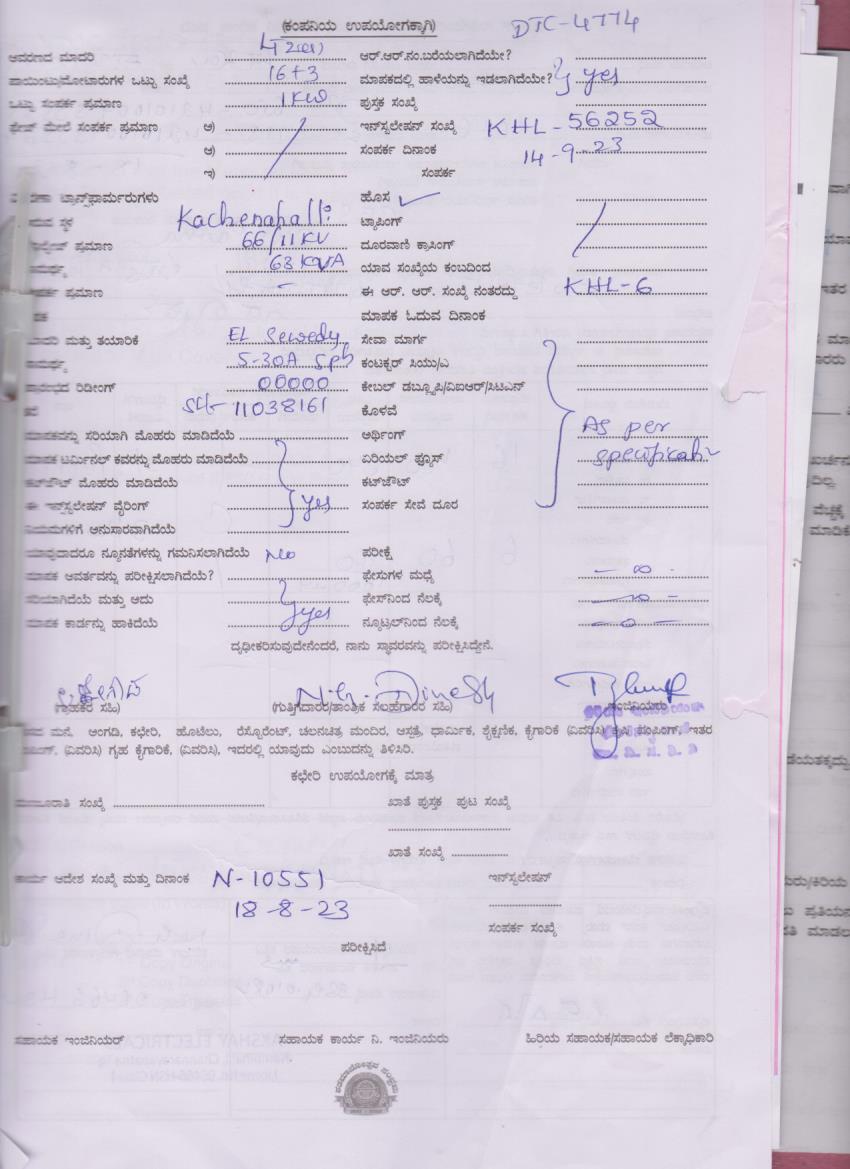 (ಕಂಪನಿಯ ಉಪಯೋಗಕ್ಕಾಗಿ) DTC-4774
ಆವರಣದ ಮಾದರಿ LT 2(a) ಆರ್.ಆರ್.ನಂ.ಬರೆಯಲಾಗಿದೆಯೇ?
ಪಾಯಿಂಟು/ಮೋಟಾರುಗಳ ಒಟ್ಟು ಸಂಖ್ಯೆ 16+3 ಮಾಪಕದಲ್ಲಿ ಹಾಳೆಯನ್ನು ಇಡಲಾಗಿದೆಯೇ? yes
ಒಟ್ಟು ಸಂಪರ್ಕ ಪ್ರಮಾಣ 1KW ಪುಸ್ತಕ ಸಂಖ್ಯೆ
ಫೇಸ್ ಮೇಲೆ ಸಂಪರ್ಕ ಪ್ರಮಾಣ ಅ) ಇನ್‌ಸ್ಟಲೇಷನ್ ಸಂಖ್ಯೆ KHL-56252
ಆ) ಸಂಪರ್ಕ ದಿನಾಂಕ 14-9-23
ಇ) ಸಂಪರ್ಕ
ಟ್ರಾನ್ಸ್‌ಫಾರ್ಮರುಗಳು ಹೊಸ ✓
ಸ್ಥಳ Kachenahalli ಟ್ಯಾಪಿಂಗ್
ಪ್ರಮಾಣ 66/11KV ದೂರವಾಣಿ ಕ್ರಾಸಿಂಗ್
63 KVA ಯಾವ ಸಂಖ್ಯೆಯ ಕಂಬದಿಂದ
ಪ್ರಮಾಣ - ಈ ಆರ್. ಆರ್. ಸಂಖ್ಯೆ ನಂತರದ್ದು KHL-6
ಮಾಪಕ ಓದುವ ದಿನಾಂಕ
ಮಾದರಿ ಮತ್ತು ತಯಾರಿಕೆ EL Sewedy ಸೇವಾ ಮಾರ್ಗ
5-30A Sph ಕಂಟಕ್ಟರ್ ಸಿಯು/ಎ
ರೀಡಿಂಗ್ 00000 ಕೇಬಲ್ ಡಬ್ಲ್ಯೂಪಿ/ವಿಐಆರ್/ಸಿಟಿಎನ್
11038161 ಕೊಳವೆ
ಮಾಪಕವನ್ನು ಸರಿಯಾಗಿ ಮೊಹರು ಮಾಡಿದೆಯೆ ಅರ್ಥಿಂಗ್ As per
ಮಾಪಕ ಟರ್ಮಿನಲ್ ಕವರನ್ನು ಮೊಹರು ಮಾಡಿದೆಯೆ ಏರಿಯಲ್ ಫ್ಯೂಸ್ specification
ಕಟ್‌ಔಟ್ ಮೊಹರು ಮಾಡಿದೆಯೆ ಕಟ್‌ಔಟ್
ಈ ಇನ್‌ಸ್ಟಲೇಷನ್ ವೈರಿಂಗ್ yes ಸಂಪರ್ಕ ಸೇವೆ ದೂರ
ನಿಯಮಗಳಿಗೆ ಅನುಸಾರವಾಗಿದೆಯೆ
ಯಾವುದಾದರೂ ನ್ಯೂನತೆಗಳನ್ನು ಗಮನಿಸಲಾಗಿದೆಯೆ No ಪರೀಕ್ಷೆ
ಮಾಪಕ ಆವರ್ತವನ್ನು ಪರೀಕ್ಷಿಸಲಾಗಿದೆಯೆ? ಫೇಸುಗಳ ಮಧ್ಯೆ - ∞ -
ಸರಿಯಾಗಿದೆಯೆ ಮತ್ತು ಅದು yes ಫೇಸ್‌ನಿಂದ ನೆಲಕ್ಕೆ
ಮಾಪಕ ಕಾರ್ಡನ್ನು ಹಾಕಿದೆಯೆ ನ್ಯೂಟ್ರಲ್‌ನಿಂದ ನೆಲಕ್ಕೆ - 0 -
ದೃಢೀಕರಿಸುವುದೇನೆಂದರೆ, ನಾನು ಸ್ಥಾವರವನ್ನು ಪರೀಕ್ಷಿಸಿದ್ದೇನೆ.
N.G. Dinesh
(ಗ್ರಾಹಕರ ಸಹಿ) (ಗುತ್ತಿಗೆದಾರರ/ತಾಂತ್ರಿಕ ಸಲಹೆಗಾರರ ಸಹಿ) ಇಂಜಿನಿಯರು
ಮನೆ, ಅಂಗಡಿ, ಕಛೇರಿ, ಹೊಟೆಲು, ರೆಸ್ಟೋರೆಂಟ್, ಚಲನಚಿತ್ರ ಮಂದಿರ, ಆಸ್ಪತ್ರೆ, ಧಾರ್ಮಿಕ, ಶೈಕ್ಷಣಿಕ, ಕೈಗಾರಿಕೆ (ವಿವರಿಸಿ) ಕೃಷಿ ಪಂಪಿಂಗ್, ಇತರ
(ವಿವರಿಸಿ) ಗೃಹ ಕೈಗಾರಿಕೆ, (ವಿವರಿಸಿ), ಇದರಲ್ಲಿ ಯಾವುದು ಎಂಬುದನ್ನು ತಿಳಿಸಿರಿ.
ಕಛೇರಿ ಉಪಯೋಗಕ್ಕೆ ಮಾತ್ರ
ಮಂಜೂರಾತಿ ಸಂಖ್ಯೆ ಖಾತೆ ಪುಸ್ತಕ ಪುಟ ಸಂಖ್ಯೆ
ಖಾತೆ ಸಂಖ್ಯೆ
ಕಾರ್ಯ ಆದೇಶ ಸಂಖ್ಯೆ ಮತ್ತು ದಿನಾಂಕ N-10551 ಇನ್‌ಸ್ಟಲೇಷನ್
18-8-23
ಸಂಪರ್ಕ ಸಂಖ್ಯೆ
ಪರೀಕ್ಷಿಸಿದೆ
ಸಹಾಯಕ ಇಂಜಿನಿಯರ್ ಸಹಾಯಕ ಕಾರ್ಯ ನಿ. ಇಂಜಿನಿಯರು ಹಿರಿಯ ಸಹಾಯಕ/ಸಹಾಯಕ ಲೆಕ್ಕಾಧಿಕಾರಿ